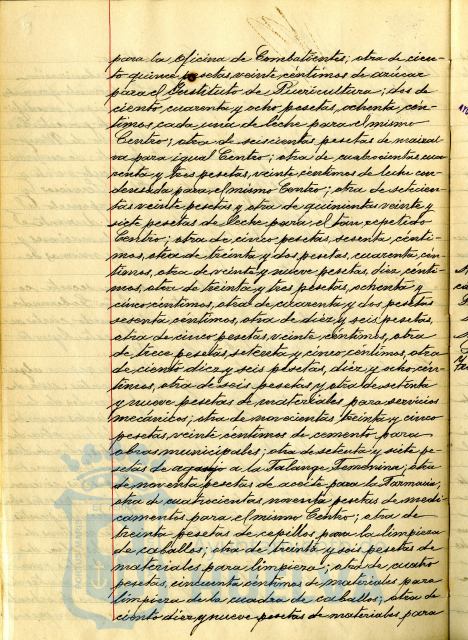 para la Oficina de Combatientes; otra de cien-
to quince pesetas, veinte céntimos de azúcar
para el Instituto de Puericultura; dos de
ciento cuarenta y ocho pesetas, ochenta cén-
timos cada una de leche para el mismo
Centro; otra de seiscientas pesetas de
para igual Centro; otra de cuatrocientas cua-
renta y tres pesetas, veinte céntimos de leche con-
densada para el mismo Centro; otra de setecien-
tas veinte pesetas y otra de quinientas veinte y
siete pesetas de leche para el tan repetido
Centro; otra de cinco pesetas, sesenta cénti-
mos, otra de treinta y dos pesetas, cuarenta cén-
timos, otra de veinte y nueve pesetas, diez cénti-
mos, otra de treinta y tres pesetas, ochenta y
cinco céntimos, otra de cuarenta y dos pesetas
sesenta céntimos, otra de diez y seis pesetas,
otra de cinco pesetas, veinte céntimos, otra
de trece pesetas setenta y cinco céntimos, otra
de ciento diez y seis pesetas, diez y ocho cén-
timos, otra de seis pesetas y otra de setenta
y nueve pesetas de materiales para servicios
mecánicos; otra de novecientas treinta y cinco
pesetas, veinte céntimos de cemento para
obras municipales; otra de setenta y siete pe-
setas de a la Falange Femenina; otra
de noventa pesetas de aceite para la Farmacia;
otra de cuatrocientas noventa pesetas de medi-
camentos para el mismo Centro; otra de
treinta pesetas de cepillos para la limpieza
de caballos; otra de treinta y seis pesetas de
materiales para limpieza; otra de cuatro
pesetas, cincuenta céntimos de materiales para
limpieza de la cuadra de caballos; otra de
ciento diez y nueve pesetas de materiales para